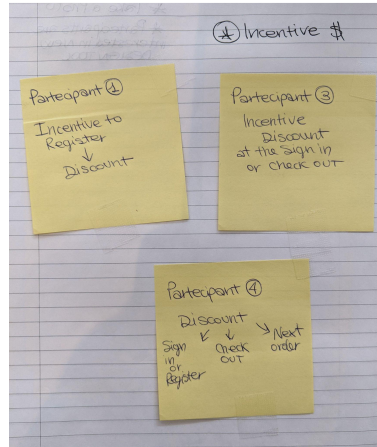 * Incentive $
Partecipant 1
Incentive to
Register
↓
Discount
Partecipant 3
Incentive
Discount
at the Sign in
or check out
Partecipant 4
Discount
↙ ↓ ↘
Sign in or Register
Check OUT
Next order